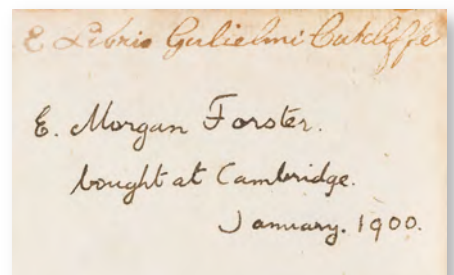 E Libris Gulielmi Cutcliffe
E. Morgan Forster.
bought at Cambridge.
January. 1900.